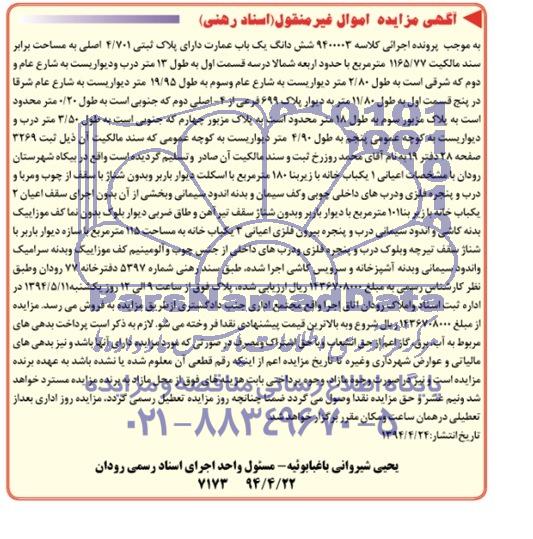 آگهی مزایده اموال غیرمنقول(اسناد رهنی)
به موجب پرونده اجرائی کلاسه ۹۴۰۰۰۰۳ شش دانگ یک باب عمارت دارای پلاک ثبتی ۴/۷۰۱ اصلی به مساحت برابر
سند مالکیت ۱۱۶۵/۷۷ مترمربع با حدود اربعه شمالا درسه قسمت اول به طول ۱۳ متر درب ودیواریست به شارع عام و
دوم که شرقی است به طول ۲/۸۰ متر دیواریست به شارع عام وسوم به طول ۱۹/۹۵ متر دیواریست به شارع عام شرقا
در پنج قسمت اول به طول ۱۱/۸۰ متر به دیوار پلاک ۶۹۹ فرعی از ۴ اصلی دوم که جنوبی است به طول ۰/۲۰ متر محدود
است به پلاک مزبور سوم به طول ۱۸ متر محدود است به پلاک مزبور چهارم که جنوبی است به طول ۳/۵۰ متر درب و
دیواریست به کوچه عمومی پنجم به طول ۴/۹۰ متر دیواریست به کوچه عمومی که سند مالکیت آن ذیل ثبت ۳۲۶۹
صفحه ۲۸ دفتر ۱۹ به نام آقای محمد روزرخ ثبت و سند مالکیت آن صادر و تسلیم گردیده است واقع در بیکاه شهرستان
رودان با مشخصات اعیانی ۱ یکباب خانه با زیربنا ۱۸۰ مترمربع با اسکلت دیوار باربر وبدون شناژ با سقف از چوب ومربا و
درب و پنجره فلزی ودرب های داخلی چوبی وکف سیمان و بدنه اندود سیمانی وبخشی از آن بدون اجرای سقف اعیان ۲
یکباب خانه با زیربنا ۱۰۱ مترمربع با دیوار باربر وبدون شناژ سقف تیرآهن و طاق ضربی دیوار بلوک بدون نما کف موزاییک
بدنه کاشی و اندود سیمانی درب و پنجره بیرون فلزی اعیانی ۳ یکباب خانه به مساحت ۱۱۵ مترمربع با سازه دیوار باربر با
شناژ سقف تیرچه وبلوک درب و پنجره فلزی ودرب های داخلی از جنس چوب و آلومینیم کف موزاییک وبدنه سرامیک
واندود سیمانی وبدنه آشپزخانه و سرویس کاشی اجرا شده، طبق سند رهنی شماره ۵۳۹۷ دفترخانه ۷۷ رودان وطبق
نظر کارشناس رسمی به مبلغ ۱۴۳۶۷۰۸۰۰۰ ریال ارزیابی شده، پلاک فوق از ساعت ۹ الی ۱۲ روز یکشنبه ۱۳۹۴/۵/۱۱ در
اداره ثبت اسناد واملاک رودان اتاق اجرا واقع مجتمع اداری جنب دادگستری از طریق مزایده به فروش می رسد. مزایده
از مبلغ ۱۴۳۶۷۰۸۰۰۰ ریال شروع وبه بالاترین قیمت پیشنهادی نقدا فروخته می شو. لازم به ذکر است پرداخت بدهی های
مربوط به آب، برق، گاز اعم از حق انشعاب ویا حق اشتراک ومصرف در صورتی که مورد مزایده دارای آنها باشد و نیز بدهی های
مالیاتی و عوارض شهرداری وغیره تا تاریخ مزایده اعم از اینکه رقم قطعی آن معلوم شده یا نشده باشد به عهده برنده
مزایده است و نیز در صورت وجود مازاد، وجوه پرداختی بابت هزینه های فوق از محل مازاد به برنده مزایده مسترد خواهد
شد ونیم عشر و حق مزایده نقدا وصول می گردد ضمنا چنانچه روز مزایده تعطیل رسمی گردد، مزایده روز اداری بعداز
تعطیلی درهمان ساعت ومکان مقرر برگزار خواهد شد.
تاریخ انتشار: ۱۳۹۴/۴/۲۴
یحیی شیروانی باغبابوئیه - مسئول واحد اجرای اسناد رسمی رودان
۹۴/۴/۲۲ ۷۱۷۳
ParsNamadData
پایگاه اطلاع رسانی مناقصه و مزایده
۰۲۱-۸۸۳۴۹۶۷۰-۵